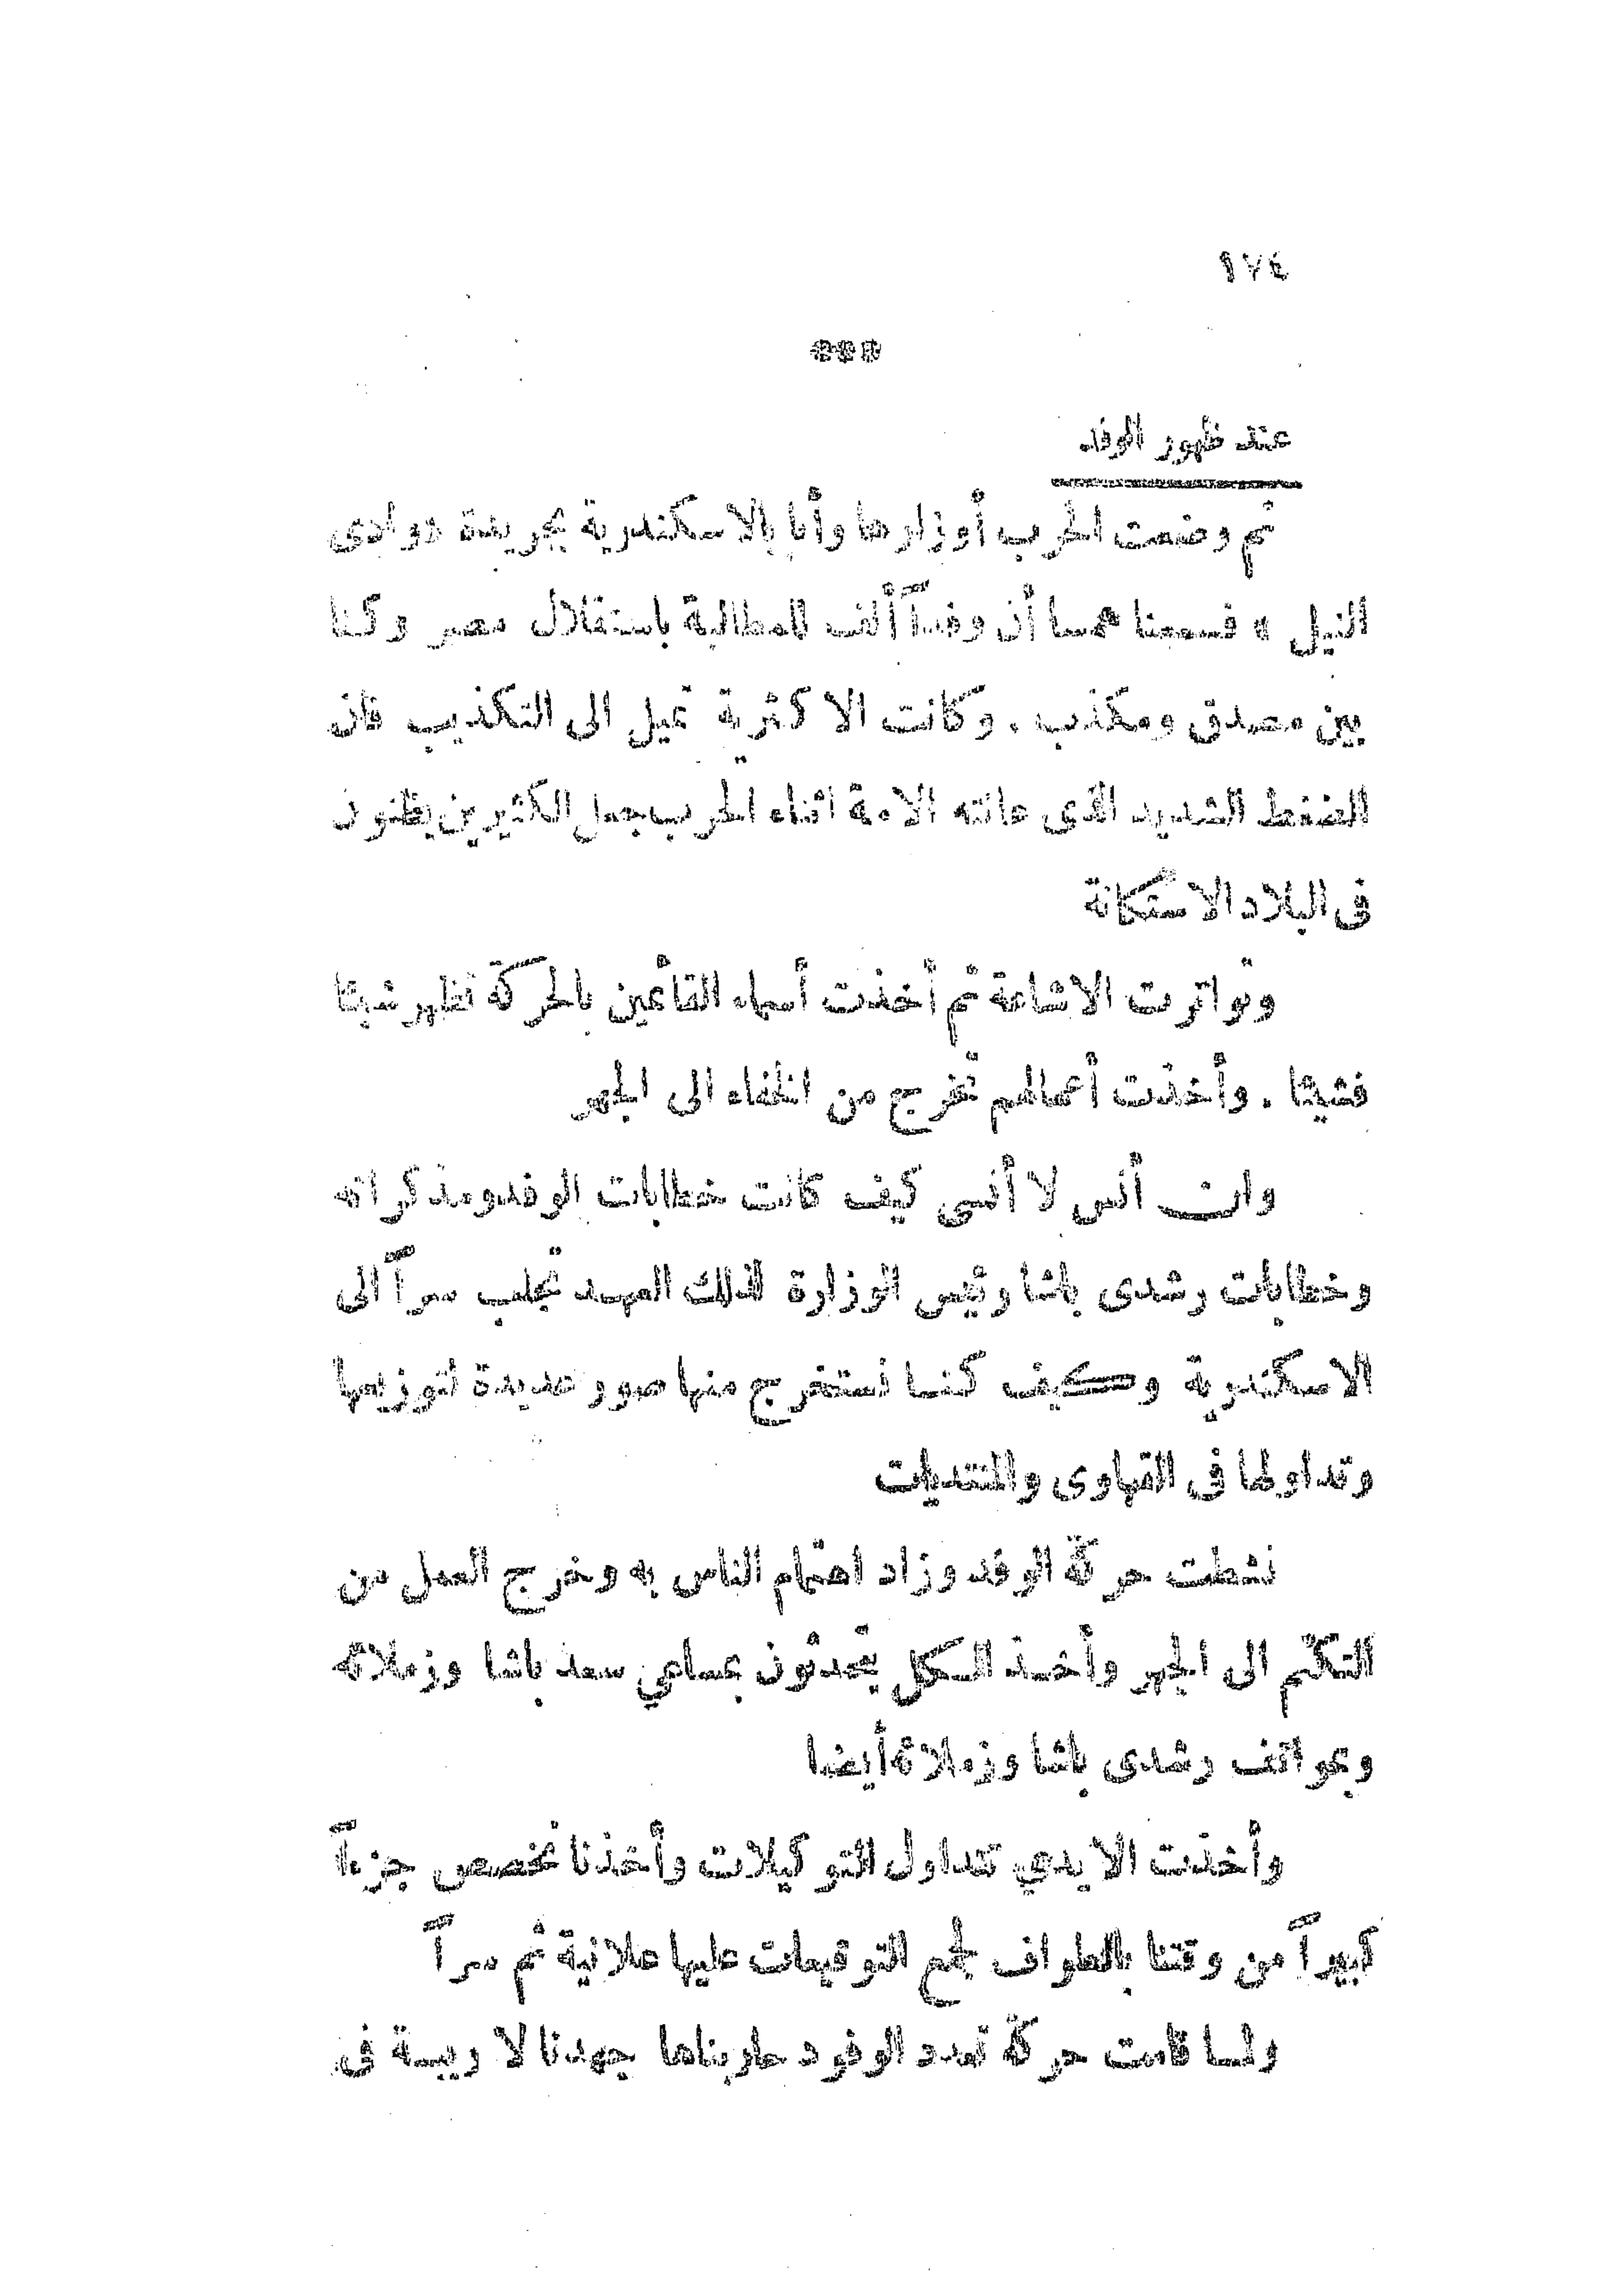 ١٧٤
***
عند ظهور الوفد
ثم وضعت الحرب أوزارها وأنا بالاسكندرية بجريدة «وادى
النيل» فسمعنا همسا أن وفداً ألف للمطالبة باستقلال مصر وكنا
بين مصدق ومكذب. وكانت الاكثرية تميل الى التكذيب فان
الضغط الشديد الذى عانته الامة اثناء الحرب جعل الكثيرين يظنون
فى البلاد الاستكانة
وتواترت الاشاعة ثم أخذت أسماء القائمين بالحركة تظهر شيئا
فشيئا. وأخذت أعمالهم تخرج من الخفاء الى الجهر
وان أنس لا أنسى كيف كانت خطابات الوفد ومذكراته
وخطابات رشدى باشا رئيس الوزارة لذلك العهد تجلب سراً الى
الاسكندرية وكيف كنا نستخرج منها صور عديدة لتوزيعها
وتداولها فى القهاوى والمنتديات
نشطت حركة الوفد وزاد اهتمام الناس به وخرج العمل من
التكتم الى الجهر وأخذ الكل يتحدثون بمساعي سعد باشا وزملائه
وبمواقف رشدى باشا وزملائه أيضا
وأخذت الايدي تتداول التوكيلات وأخذنا نخصص جزءاً
كبيراً من وقتنا بالطواف لجمع التوقيعات عليها علانية ثم سراً
ولما قامت حركة تعدد الوفود حاربناها جهدنا لا ريبة فى